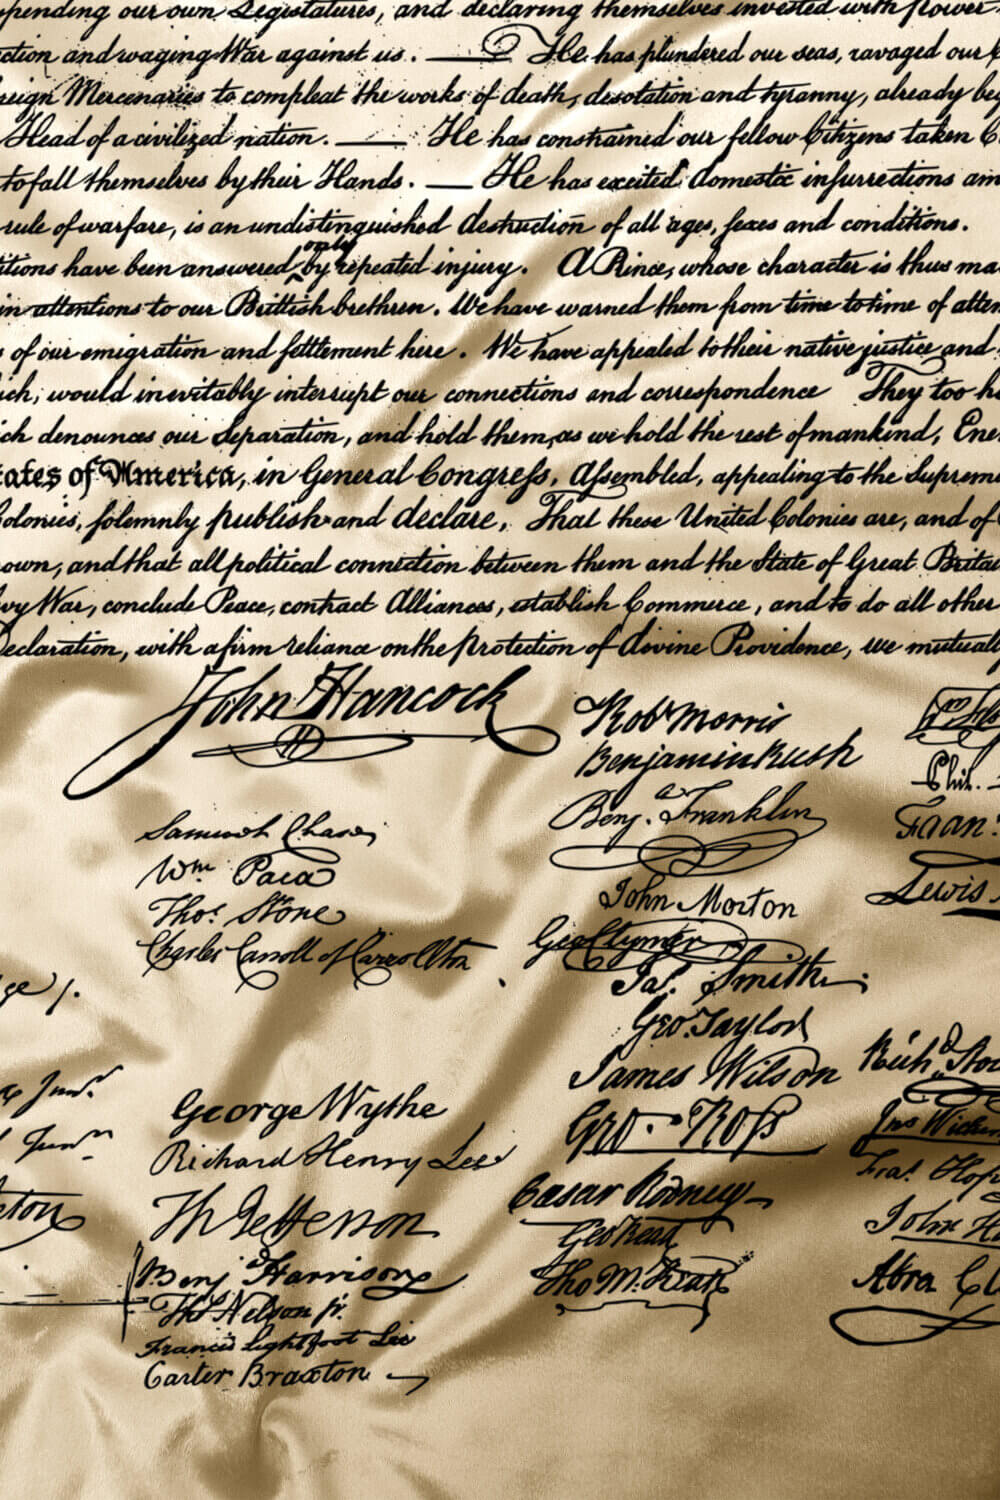 pending our own Legislatures, and declaring themselves invested with power
ction and waging War against us. — He has plundered our seas, ravaged our
reign Mercenaries to compleat the works of death, desolation and tyranny, already beg
Head of a civilized nation. — He has constrained our fellow Citizens taken C
to fall themselves by their Hands. — He has excited domestic insurrections am
rule of warfare, is an undistinguished destruction of all ages, sexes and conditions.
only
itions have been answered by repeated injury. A Prince, whose character is thus ma
in attentions to our Brittish brethren. We have warned them from time to time of attem
s of our emigration and settlement here. We have appealed to their native justice and
ich, would inevitably interrupt our connections and correspondence They too ha
ich denounces our Separation, and hold them, as we hold the rest of mankind, Ene
ates of America, in General Congress, Assembled, appealing to the Supreme
Colonies, solemnly publish and declare, That these United Colonies are, and of
own, and that all political connection between them and the State of Great Britai
evy War, conclude Peace, contract Alliances, establish Commerce, and to do all other
Declaration, with a firm reliance on the protection of divine Providence, we mutually
John Hancock
Robt Morris
Benjamin Rush
Benja. Franklin
John Morton
Geo Clymer
Jas. Smith
Geo. Taylor
James Wilson
Geo. Ross
Caesar Rodney
Geo Read
Tho M:Kean
Samuel Chase
Wm. Paca
Thos. Stone
Charles Carroll of Carrollton
George Wythe
Richard Henry Lee
Th Jefferson
Benja Harrison
Thos Nelson jr.
Francis Lightfoot Lee
Carter Braxton
Phil.
Lewis
Richd. Stoc
Jno Wither
Fras. Hop
John H
Abra Cl
ge j.
Junr.
Junr.
ton